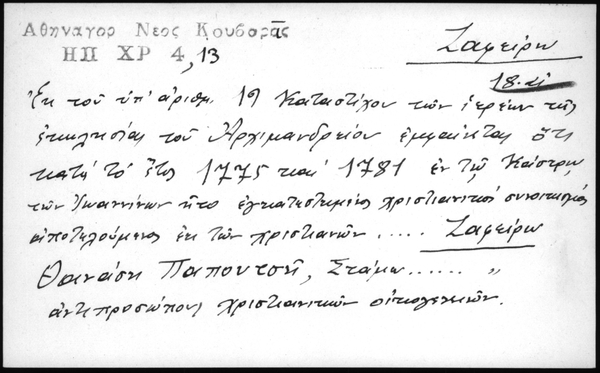 Αθηναγορ Νεος Κουβαρᾶς
ΗΠ ΧΡ 4, 13
Ζαφείρω
18. αι
Ἐκ τοῦ ὑπ' ἀριθμ. 19 Καταστίχου τῶν ἱερέων τῆς
ἐκκλησίας τοῦ Ἀρχιμανδρείου ἐμφαίνεται ὅτι
κατὰ τὸ ἔτος 1775 καὶ 1781 ἐν τῷ Κάστρῳ
τῶν Ἰωαννίνων ἦτο ἐγκατεστημένος χριστιανικὸς συνοικισμὸς
ἀποτελούμενος ἐκ τῶν χριστιανῶν ..... Ζαφείρω
Θανάση Παπουτσῆ, Στάμω ...... "
ἀντιπροσώπους χριστιανικῶν οἰκογενειῶν.